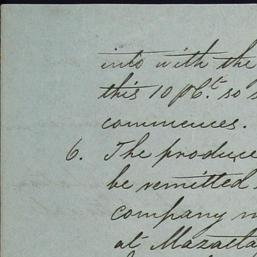 into with the
this 10 p/ct. so
commences.
6. The produce
be remitted
company
at Mazatla